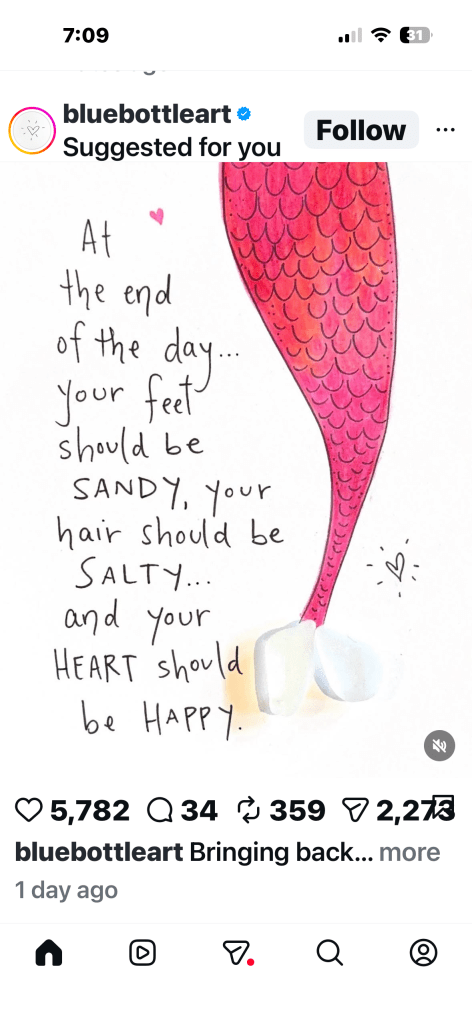 7:09
31
bluebottleart
Suggested for you
Follow
At
the end
of the day...
your feet
should be
SANDY, your
hair should be
SALTY...
and your
HEART should
be HAPPY.
5,782 34 359 2,273
bluebottleart Bringing back... more
1 day ago